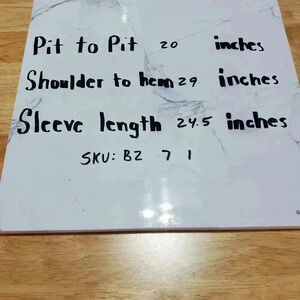 Pit to Pit 20 inches
Shoulder to hem 29 inches
Sleeve length 24.5 inches
SKU: BZ 7 1